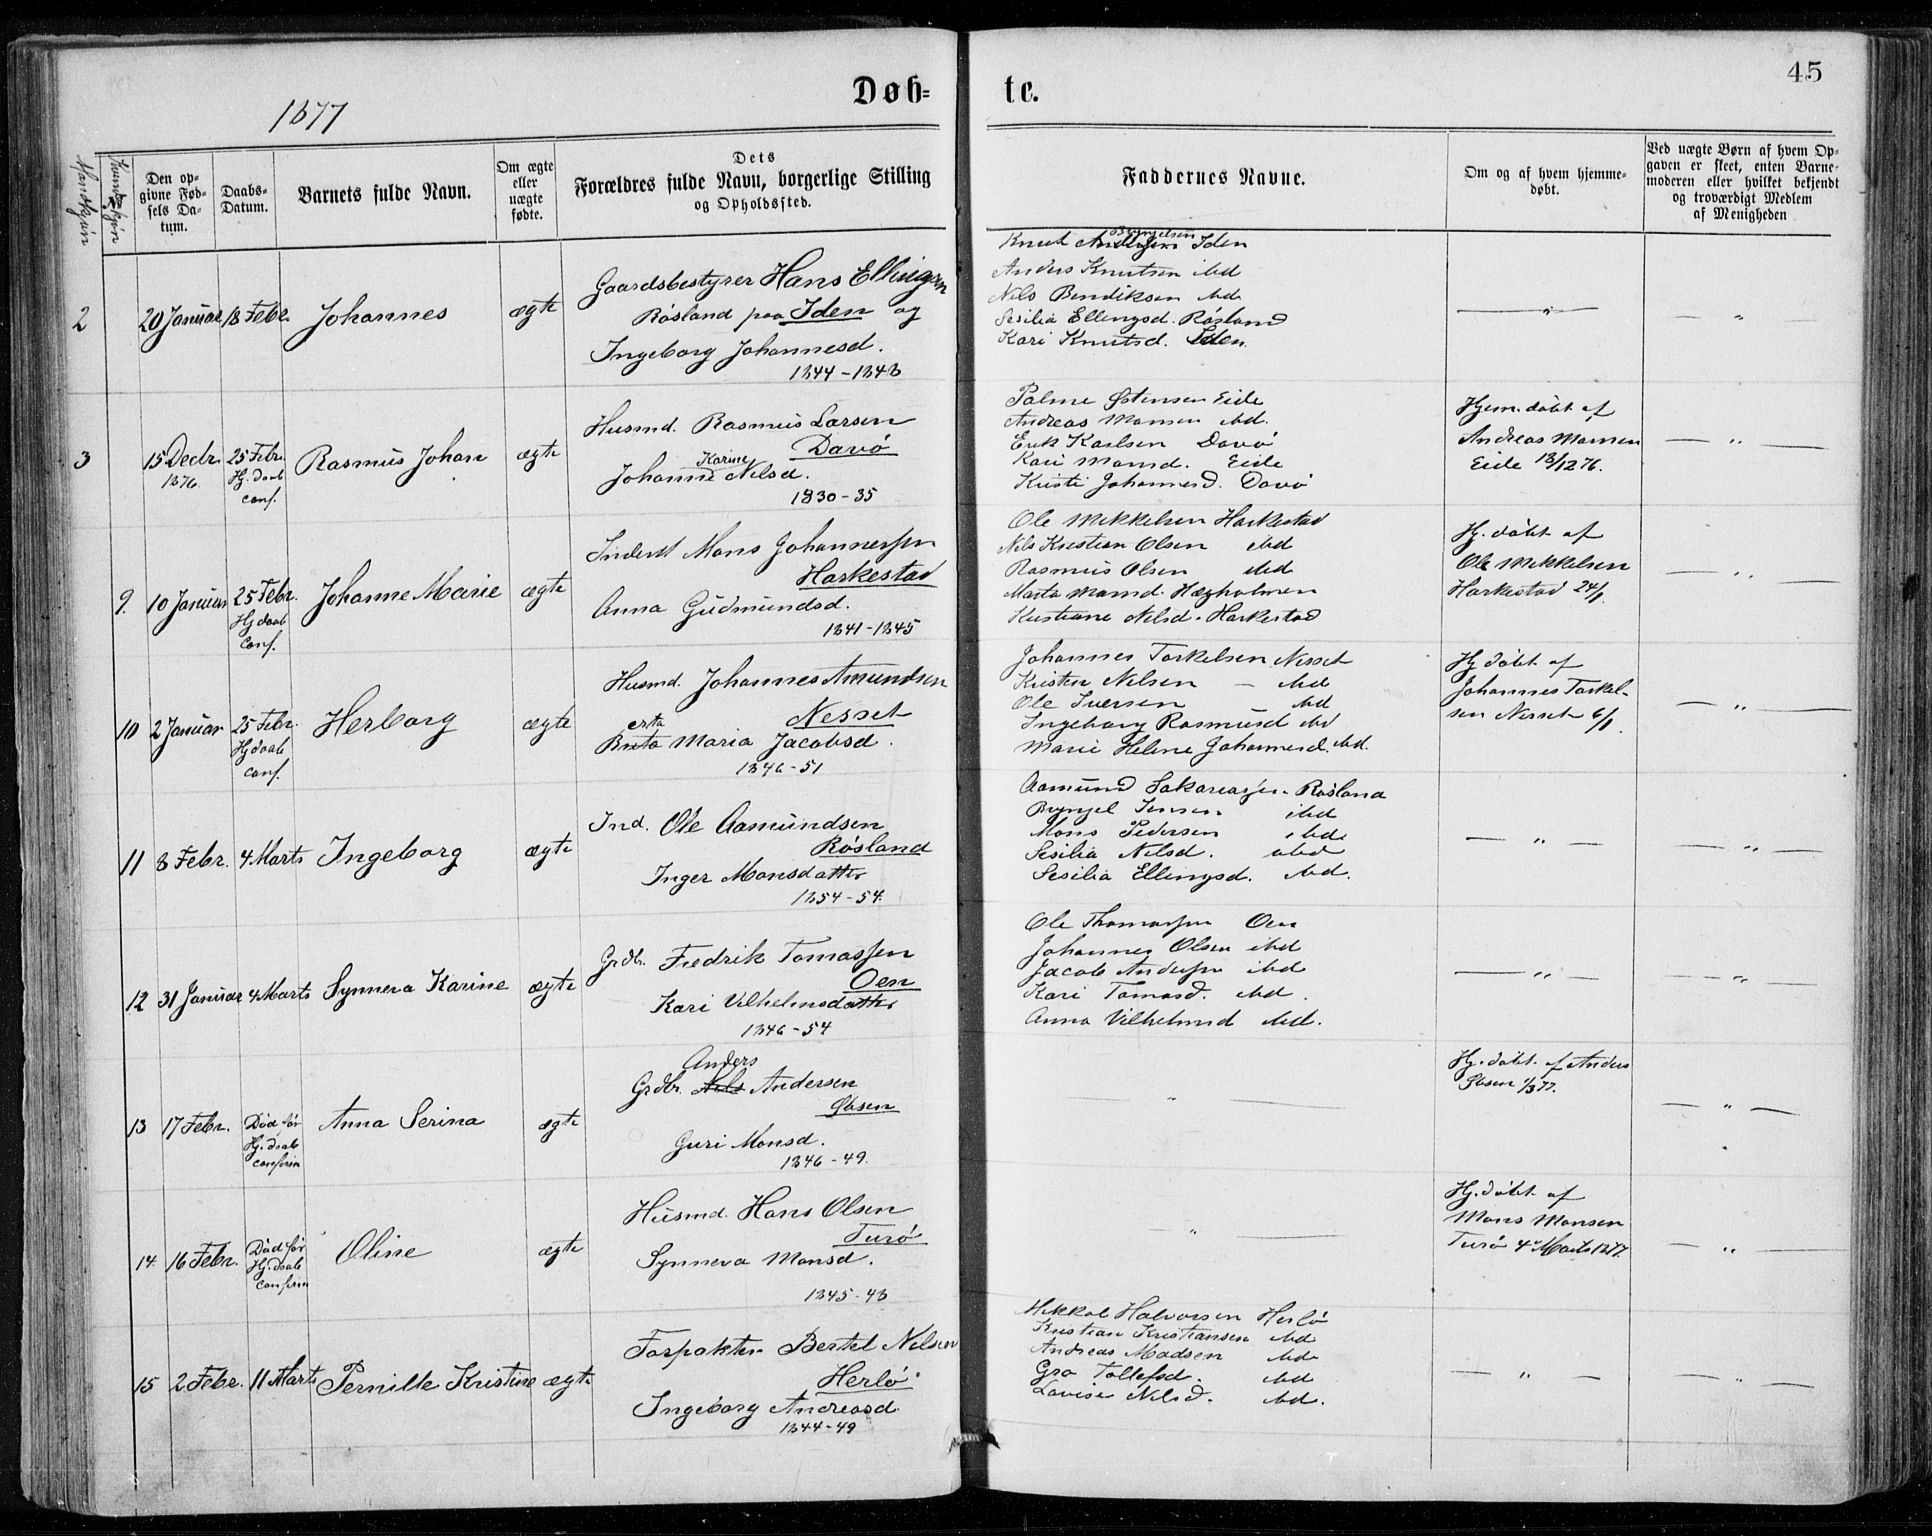 1877
Døb-
te.
45
Mandkjøn
Kvindekjøn
Den op-
givne Fød-
sels Da-
tum.
Daabs-
Datum.
Barnets fulde Navn.
Om ægte
eller
uægte
fødte.
Dets
Forældres fulde Navn, borgerlige Stilling
og Opholdssted.
Faddernes Navne.
Om og af hvem hjemme-
døbt.
Ved uægte Børn af hvem Op-
gaven er skeet, enten Barne-
moderen eller hvilket bekjendt
og troværdigt Medlem
af Menigheden
2
20 Januar
18 Febr.
Johannes
ægte
Gaardsbestyrer Hans Ellingsen
Røsland paa Iden og
Ingeborg Johannesd.
1844-1848
Knut Iden
Anders Knutsen ibd
Nils Bendiksen ibd
Sesilia Ellingsd. Røsland
Kari Knutsd. Iden
— " —
— "
3
15 Decbr.
1876
25 Febr.
Hj. daab
conf.
Rasmus Johan
ægte
Husmd. Rasmus Larsen
Davø
Karine
Johanne Nilsd.
1830-35
Palme Østensen Eide
Andreas Monsen ibd.
Erik Karlsen Davø
Kari Monsd. Eide
Kristi Johannesd. Davø
Hjem. døbt af
Andreas Monsen
Eide 18/12 76.
— " —
9.
10 Januar
25 Febr.
Hj daab
Conf.
Johanne Marie
ægte
Inderst Mons Johannessen
Harkestad
Anna Gudmundsd.
1841-1845
Ole Mikkelsen Harkestad
Nils Kristian Olsen ibd
Rasmus Olsen ibd
Marta Monsd. Hægholmen
Kristiane Nilsd. Harkestad
Hj. døbt af
Ole Mikkelsen
Harkestad 24/1.
— " —
10
2 Januar
25 Febr.
Hj daab
conf.
Herborg
ægte
Husmd. Johannes Amundsen
Nesset
erta
Brita Maria Jacobsd.
1846-51
Johannes Torkelsen Nesset
Kristen Nilsen — ibd
Ole Iversen ibd
Ingeborg Rasmusd ibd
Marie Helene Johannesd. ibd.
Hj døbt af
Johannes Torkel-
sen Nesset 6/1.
— " —
11
8 Febr.
4 Marts
Ingeborg
ægte
Ind. Ole Aamundsen
Røsland
Inger Monsdatter
1854-54.
Aamund Sakariassen Røsland
Brynjel Jensen ibd
Mons Pedersen ibd
Sesilia Nilsd. ibd
Sesilia Ellingsd. ibd.
— " —
— " —
12
31 Januar
4 Marts
Synneva Karine
ægte
Grdbr. Fredrik Tomassen
Oen
Kari Vilhelmsdatter
1846-54
Ole Thomassen Oen
Johannes Olsen ibd
Jacob Andersen ibd
Kari Tomasd. ibd.
Anna Vilhelmsd ibd.
— " —
— " —
13
17 Febr.
Død før
Hj. daab
confirm
Anna Serina
ægte
Anders
Grdbr. Nils Andersen
Ebsen
Guri Monsd.
1846-49.
" —
Hj. døbt af Anders
Ebsen 1/3 77.
— " —
14
16 Febr.
Død før
Hj. daab
confirm
Oline
ægte
Husmd. Hans Olsen
Turø
Synneva Monsd.
1845-48
" —
Hj. døbt af
Mons Monsen
Turø 4 Marts 1877.
— " —
15
2 Febr.
11 Marts
Pernille Kristine
ægte
Forpakter Bertel Nilsen
Herlø
Ingeborg Andreasd.
1844-49
Mikkal Halvorsen Herlø
Kristian Kristiansen ibd
Andreas Madsen ibd
Gro Tollefsd. ibd
Lovise Nilsd. ibd.
— " —
— " —